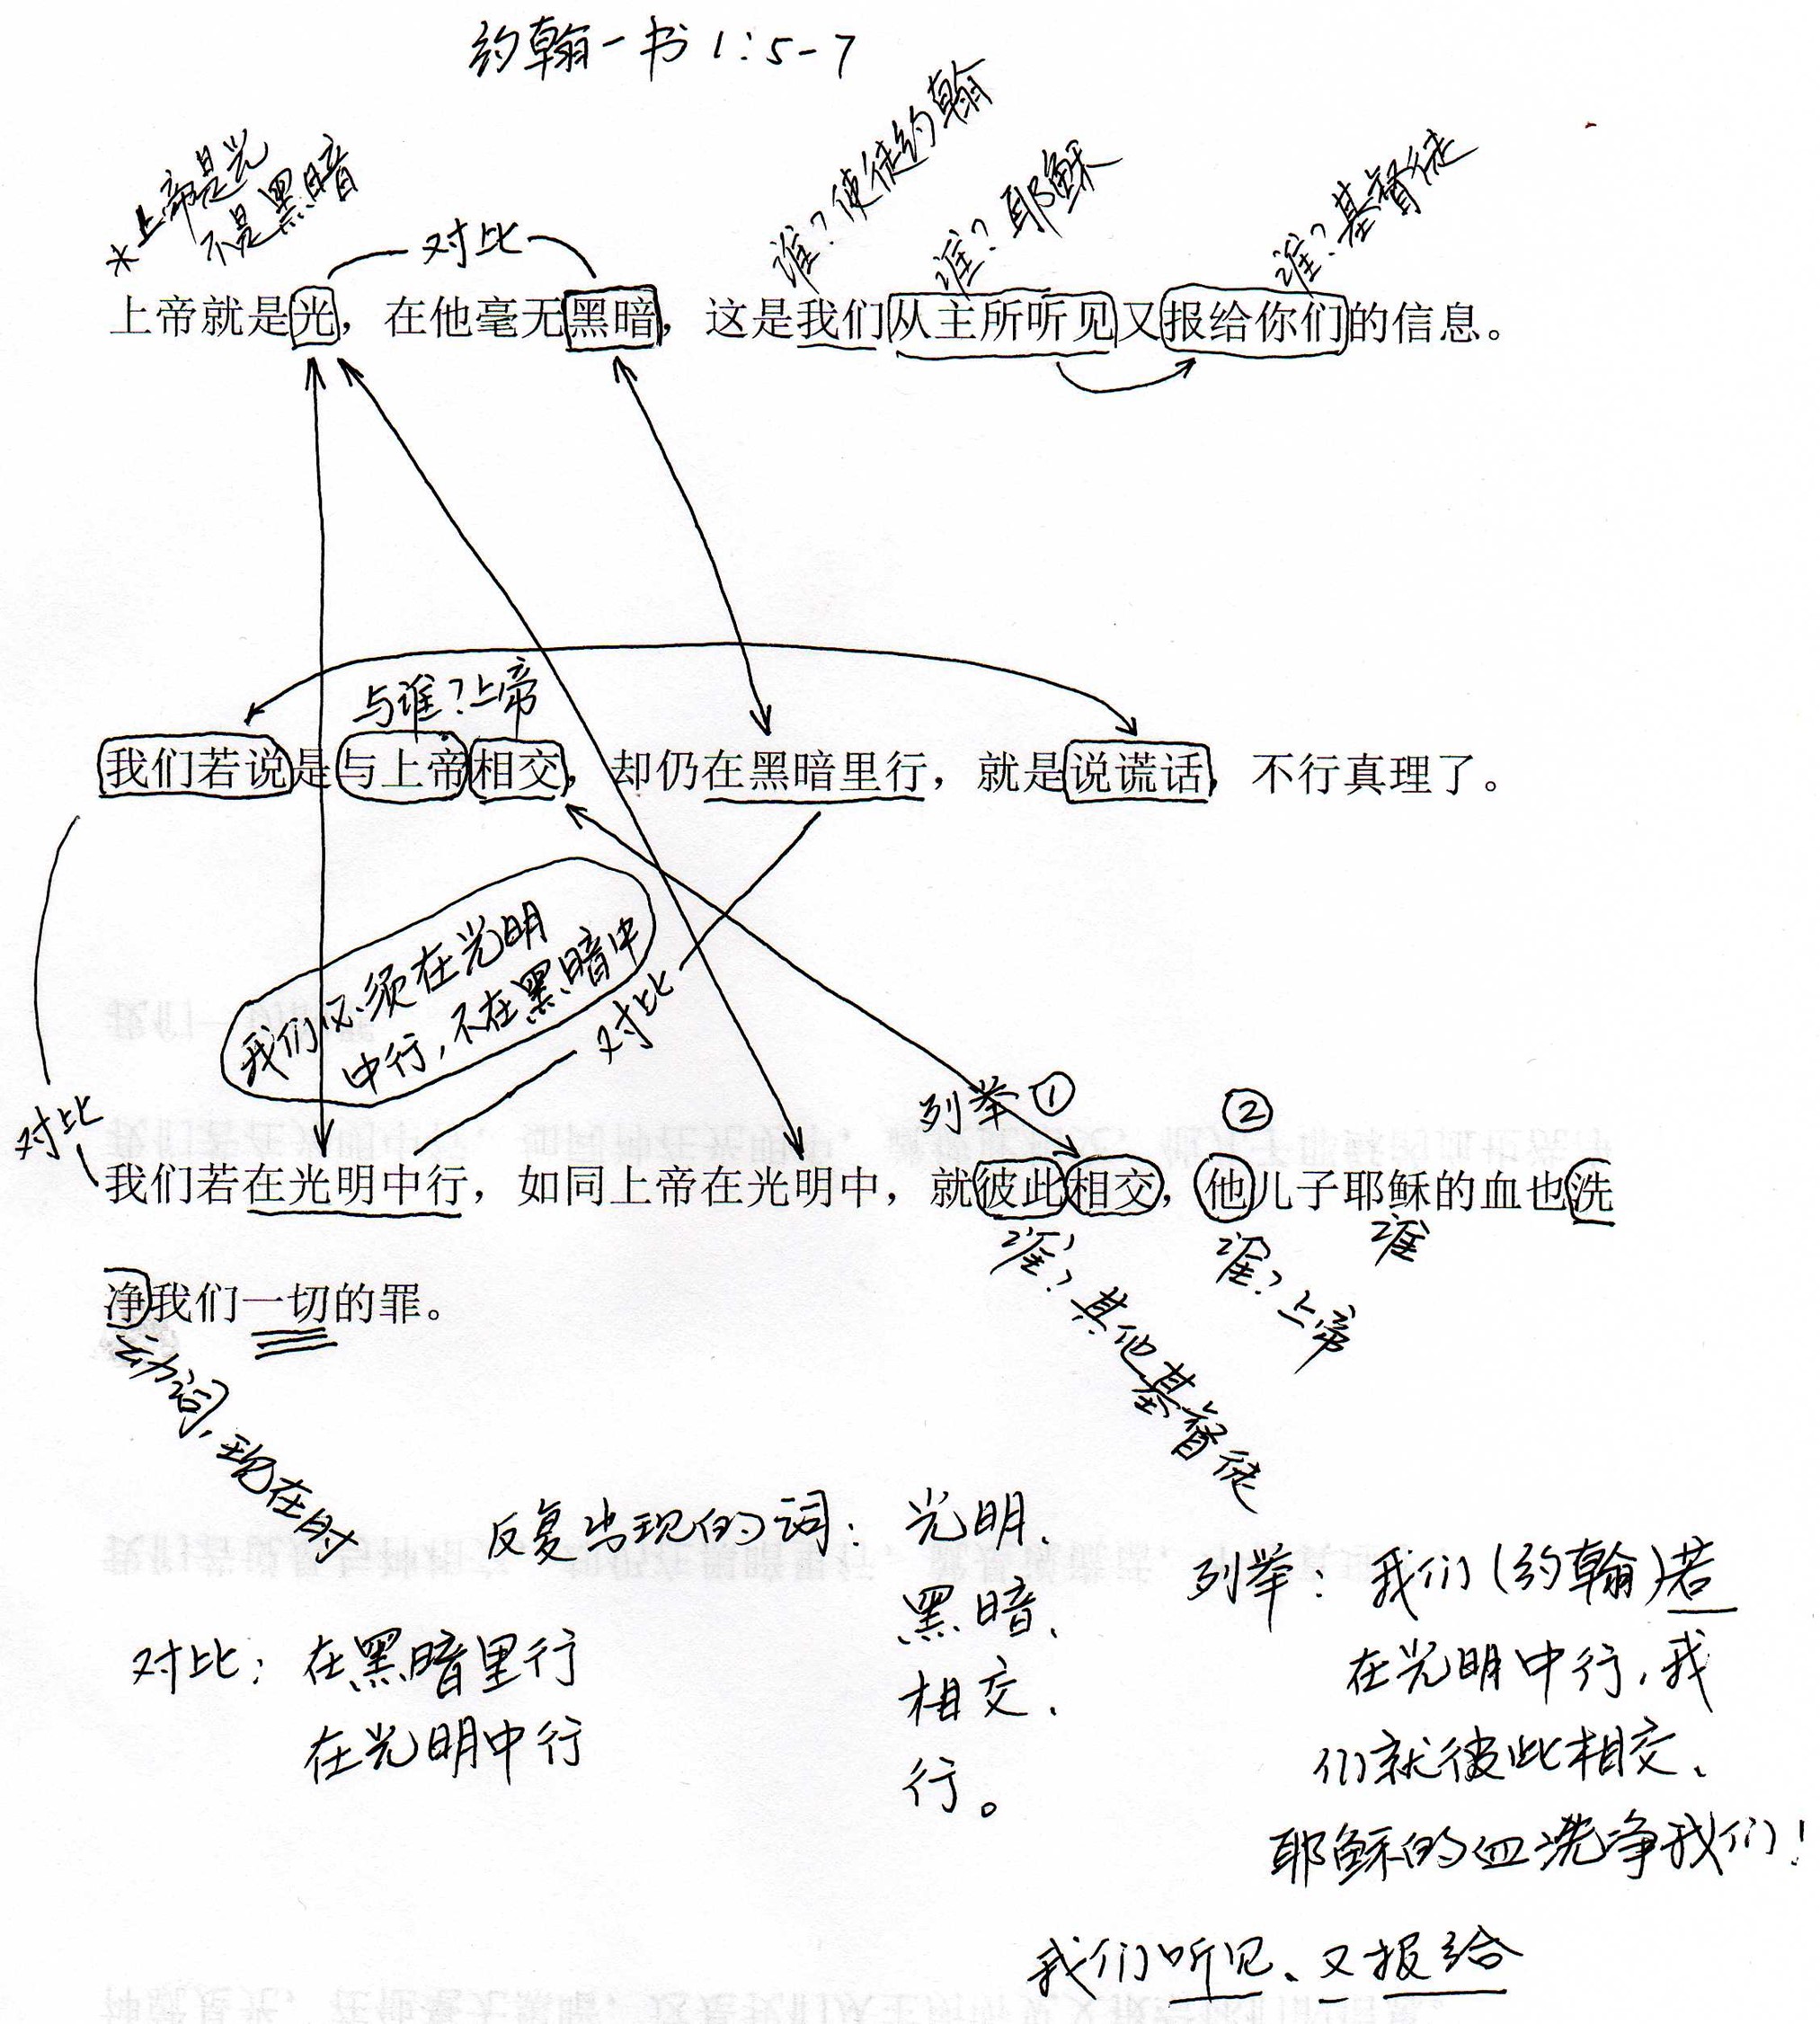 约翰一书 1:5-7
*上帝是光
不是黑暗
对比
谁?使徒约翰
谁?耶稣
谁?基督徒
上帝就是光，在他毫无黑暗，这是我们从主所听见又报给你们的信息。
与谁?上帝
我们若说是与上帝相交，却仍在黑暗里行，就是说谎话，不行真理了。
我们必须在光明
中行,不在黑暗中
对比
对比
列举 ①
②
我们若在光明中行，如同上帝在光明中，就彼此相交，他儿子耶稣的血也洗
谁?其他基督徒
谁?上帝
谁
净我们一切的罪。
动词,现在时
反复出现的词: 光明、
黑暗、
相交、
行。
对比: 在黑暗里行
在光明中行
列举: 我们(约翰)若
在光明中行,我
们就彼此相交、
耶稣的血洗净我们!
我们听见、又报给